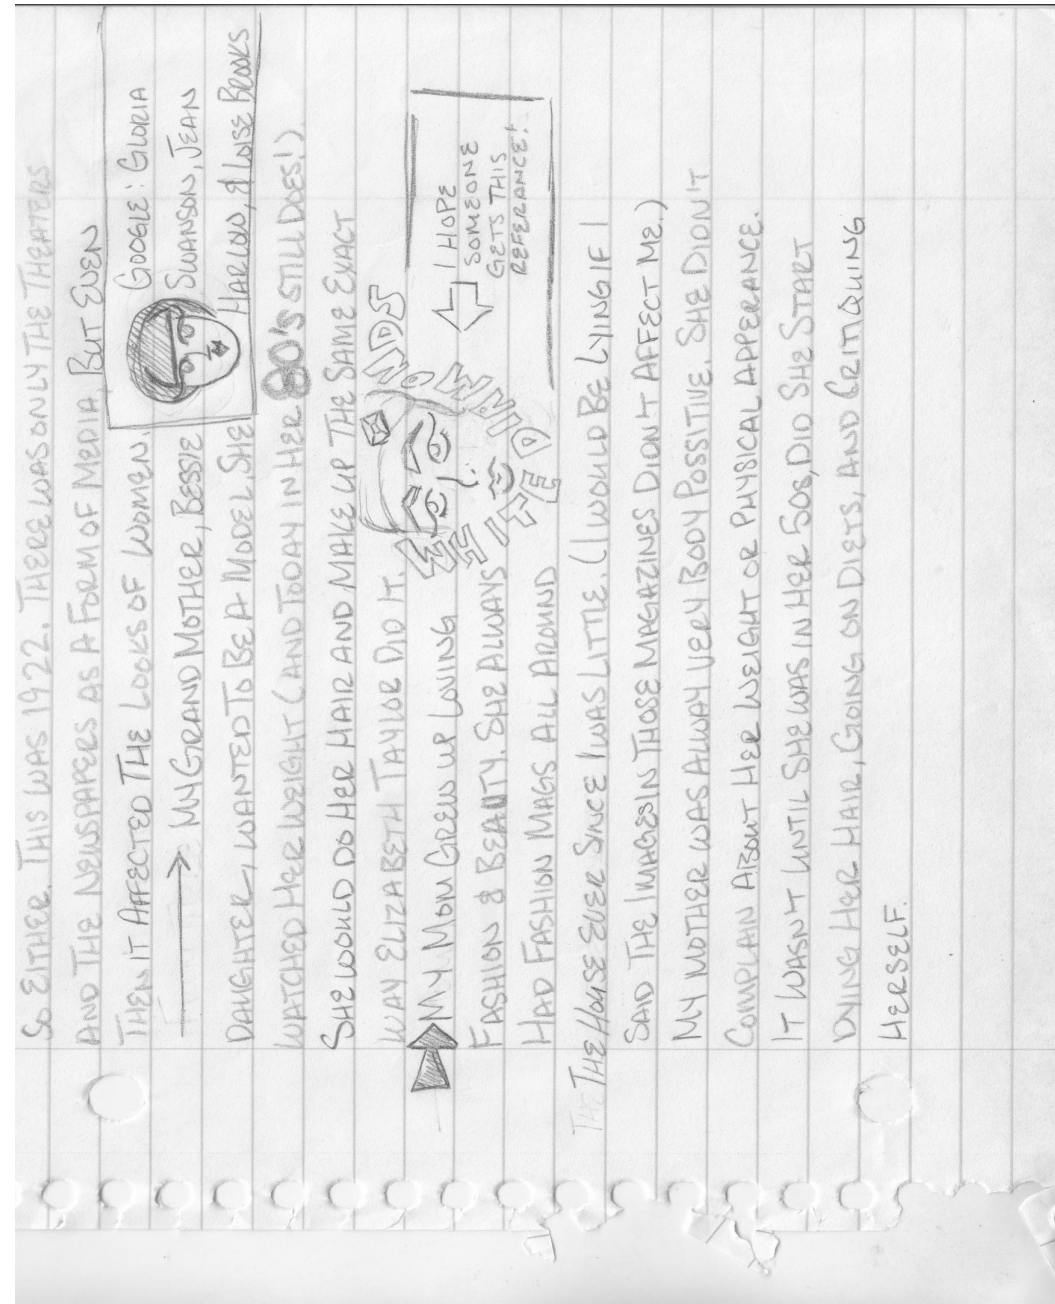 SO EITHER. THIS WAS 1922. THERE WAS ONLY THE THEATERS
AND THE NEWSPAPERS AS A FORM OF MEDIA. BUT EVEN
THEN IT AFFECTED THE LOOKS OF WOMEN.
GOOGLE: GLORIA
SWANSON, JEAN
HARLOW, & LOISE BROOKS
MY GRAND MOTHER, BESSIE
DAUGHTER, WANTED TO BE A MODEL. SHE
WATCHED HER WEIGHT (AND TODAY IN HER 80'S STILL DOES!)
SHE WOULD DO HER HAIR AND MAKE UP THE SAME EXACT
WAY ELIZABETH TAYLOR DID IT.
WHITE DIAMONDS
I HOPE
SOMEONE
GETS THIS
REFERANCE!
MY MOM GREW UP LOVING
FASHION & BEAUTY. SHE ALWAYS
HAD FASHION MAGS ALL AROUND
THE THE HOUSE EVER SINCE I WAS LITTLE. (I WOULD BE LYING IF I
SAID THE IMAGES IN THOSE MAGAZINES DIDN'T AFFECT ME.)
MY MOTHER WAS ALWAY VERY BODY POSSITIVE. SHE DIDN'T
COMPLAIN ABOUT HER WEIGHT OR PHYSICAL APPERANCE.
IT WASN'T UNTIL SHE WAS IN HER 50S, DID SHE START
DYING HER HAIR, GOING ON DIETS, AND CRITIQUING
HERSELF.